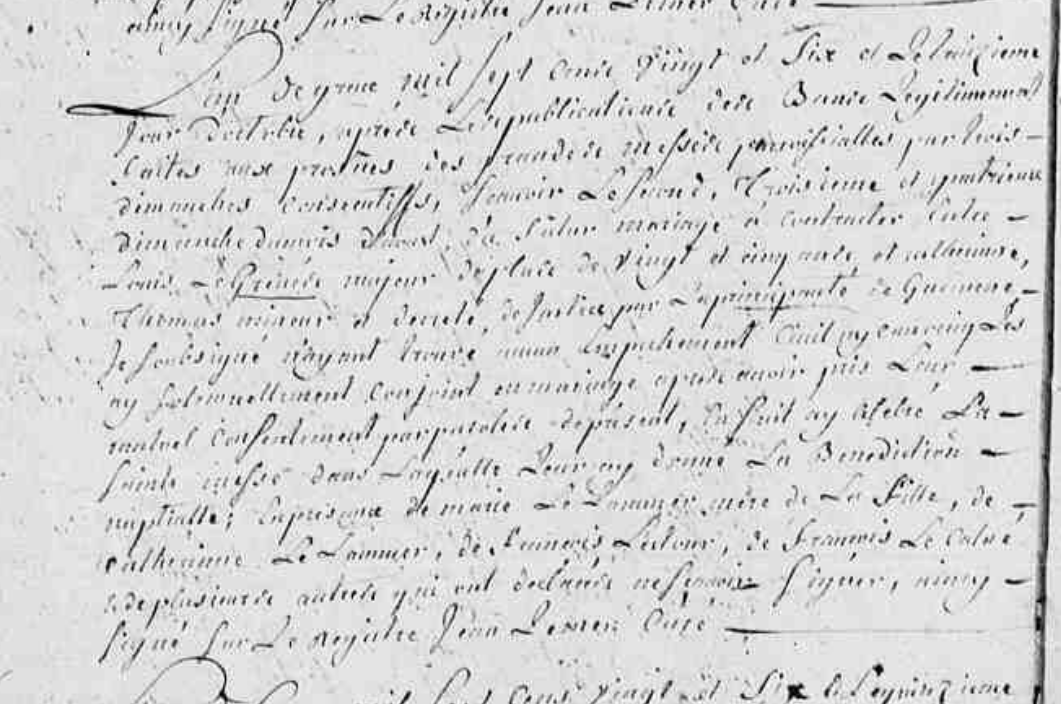 ainsy signé sur Le registre Jean Curé
L'an de grace mil sept cents vingt et six et Le
Jour d'octobre, aprés Les publications des Bancs Legitimement
faittes aux prosnes des grandes messes paroissialles par trois
dimanches consecutiffs, scavoir Le second, troisieme et quatrieme
dimanche du mois du futur mariage a contracter Entre
Louis Le majeur de plus de vingt et cinq ans, et catherinne,
Thomas mineur et decreté, de Justice par La principauté de Guemené,
Je soubsigné n'ayant trouvé aucun Empechement
ay solemnellement conjoint en mariage aprés avoir pris Leur
mutuel consentement par parolles de présent, En suit ay celebré La
sainte messe dans Laquelle Leur ay donné La Benediction
nuptialle; En presence de marie Le Lammer mère de La fille, de
catherinne Le Lammer, de de François Le
& de plusieurs autres qui ont declarés ne scavoir signer, ainsy
signé sur Le registre Jean Curé
mil sept Cens vingt et Six Le